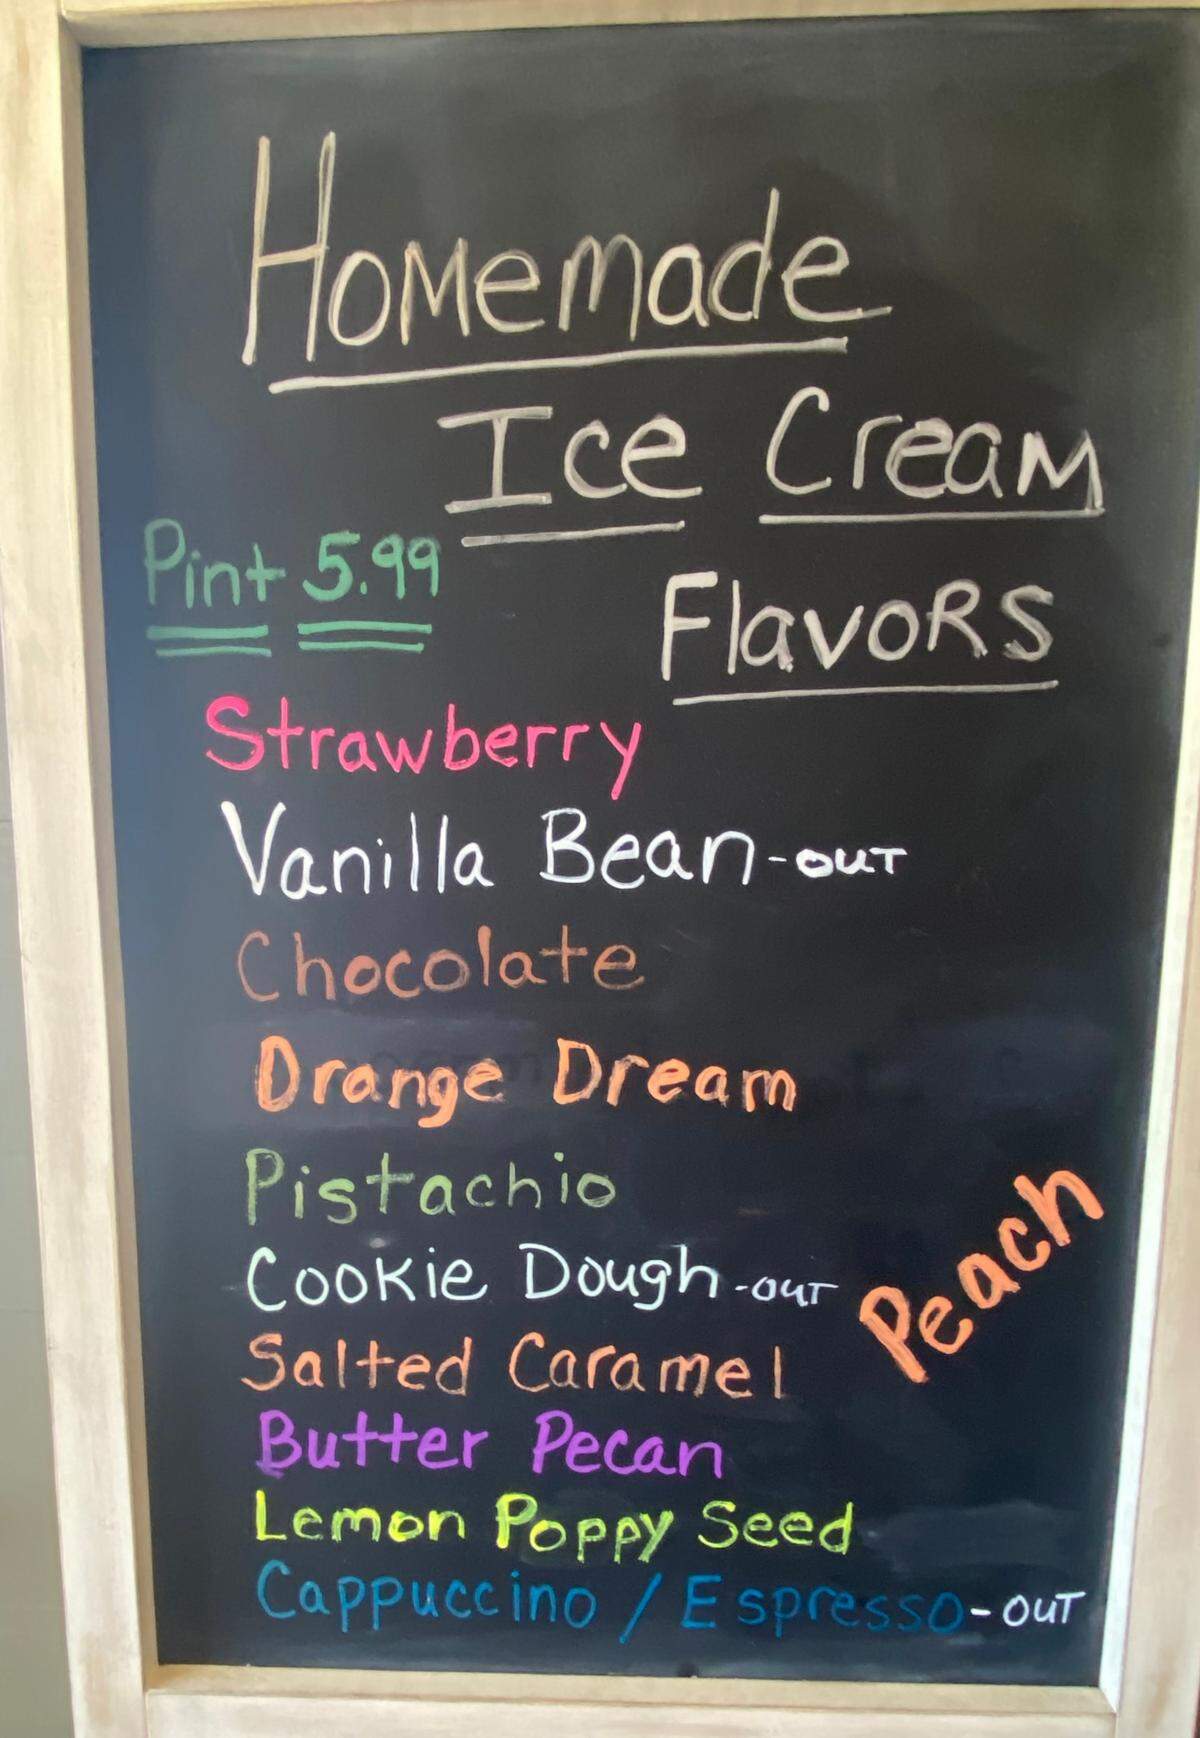 Homemade
Ice Cream
Pint 5.99
Flavors
Strawberry
Vanilla Bean - OUT
Chocolate
Orange Dream
Pistachio
Cookie Dough - OUT
Peach
Salted Caramel
Butter Pecan
Lemon Poppy Seed
Cappuccino / Espresso - OUT